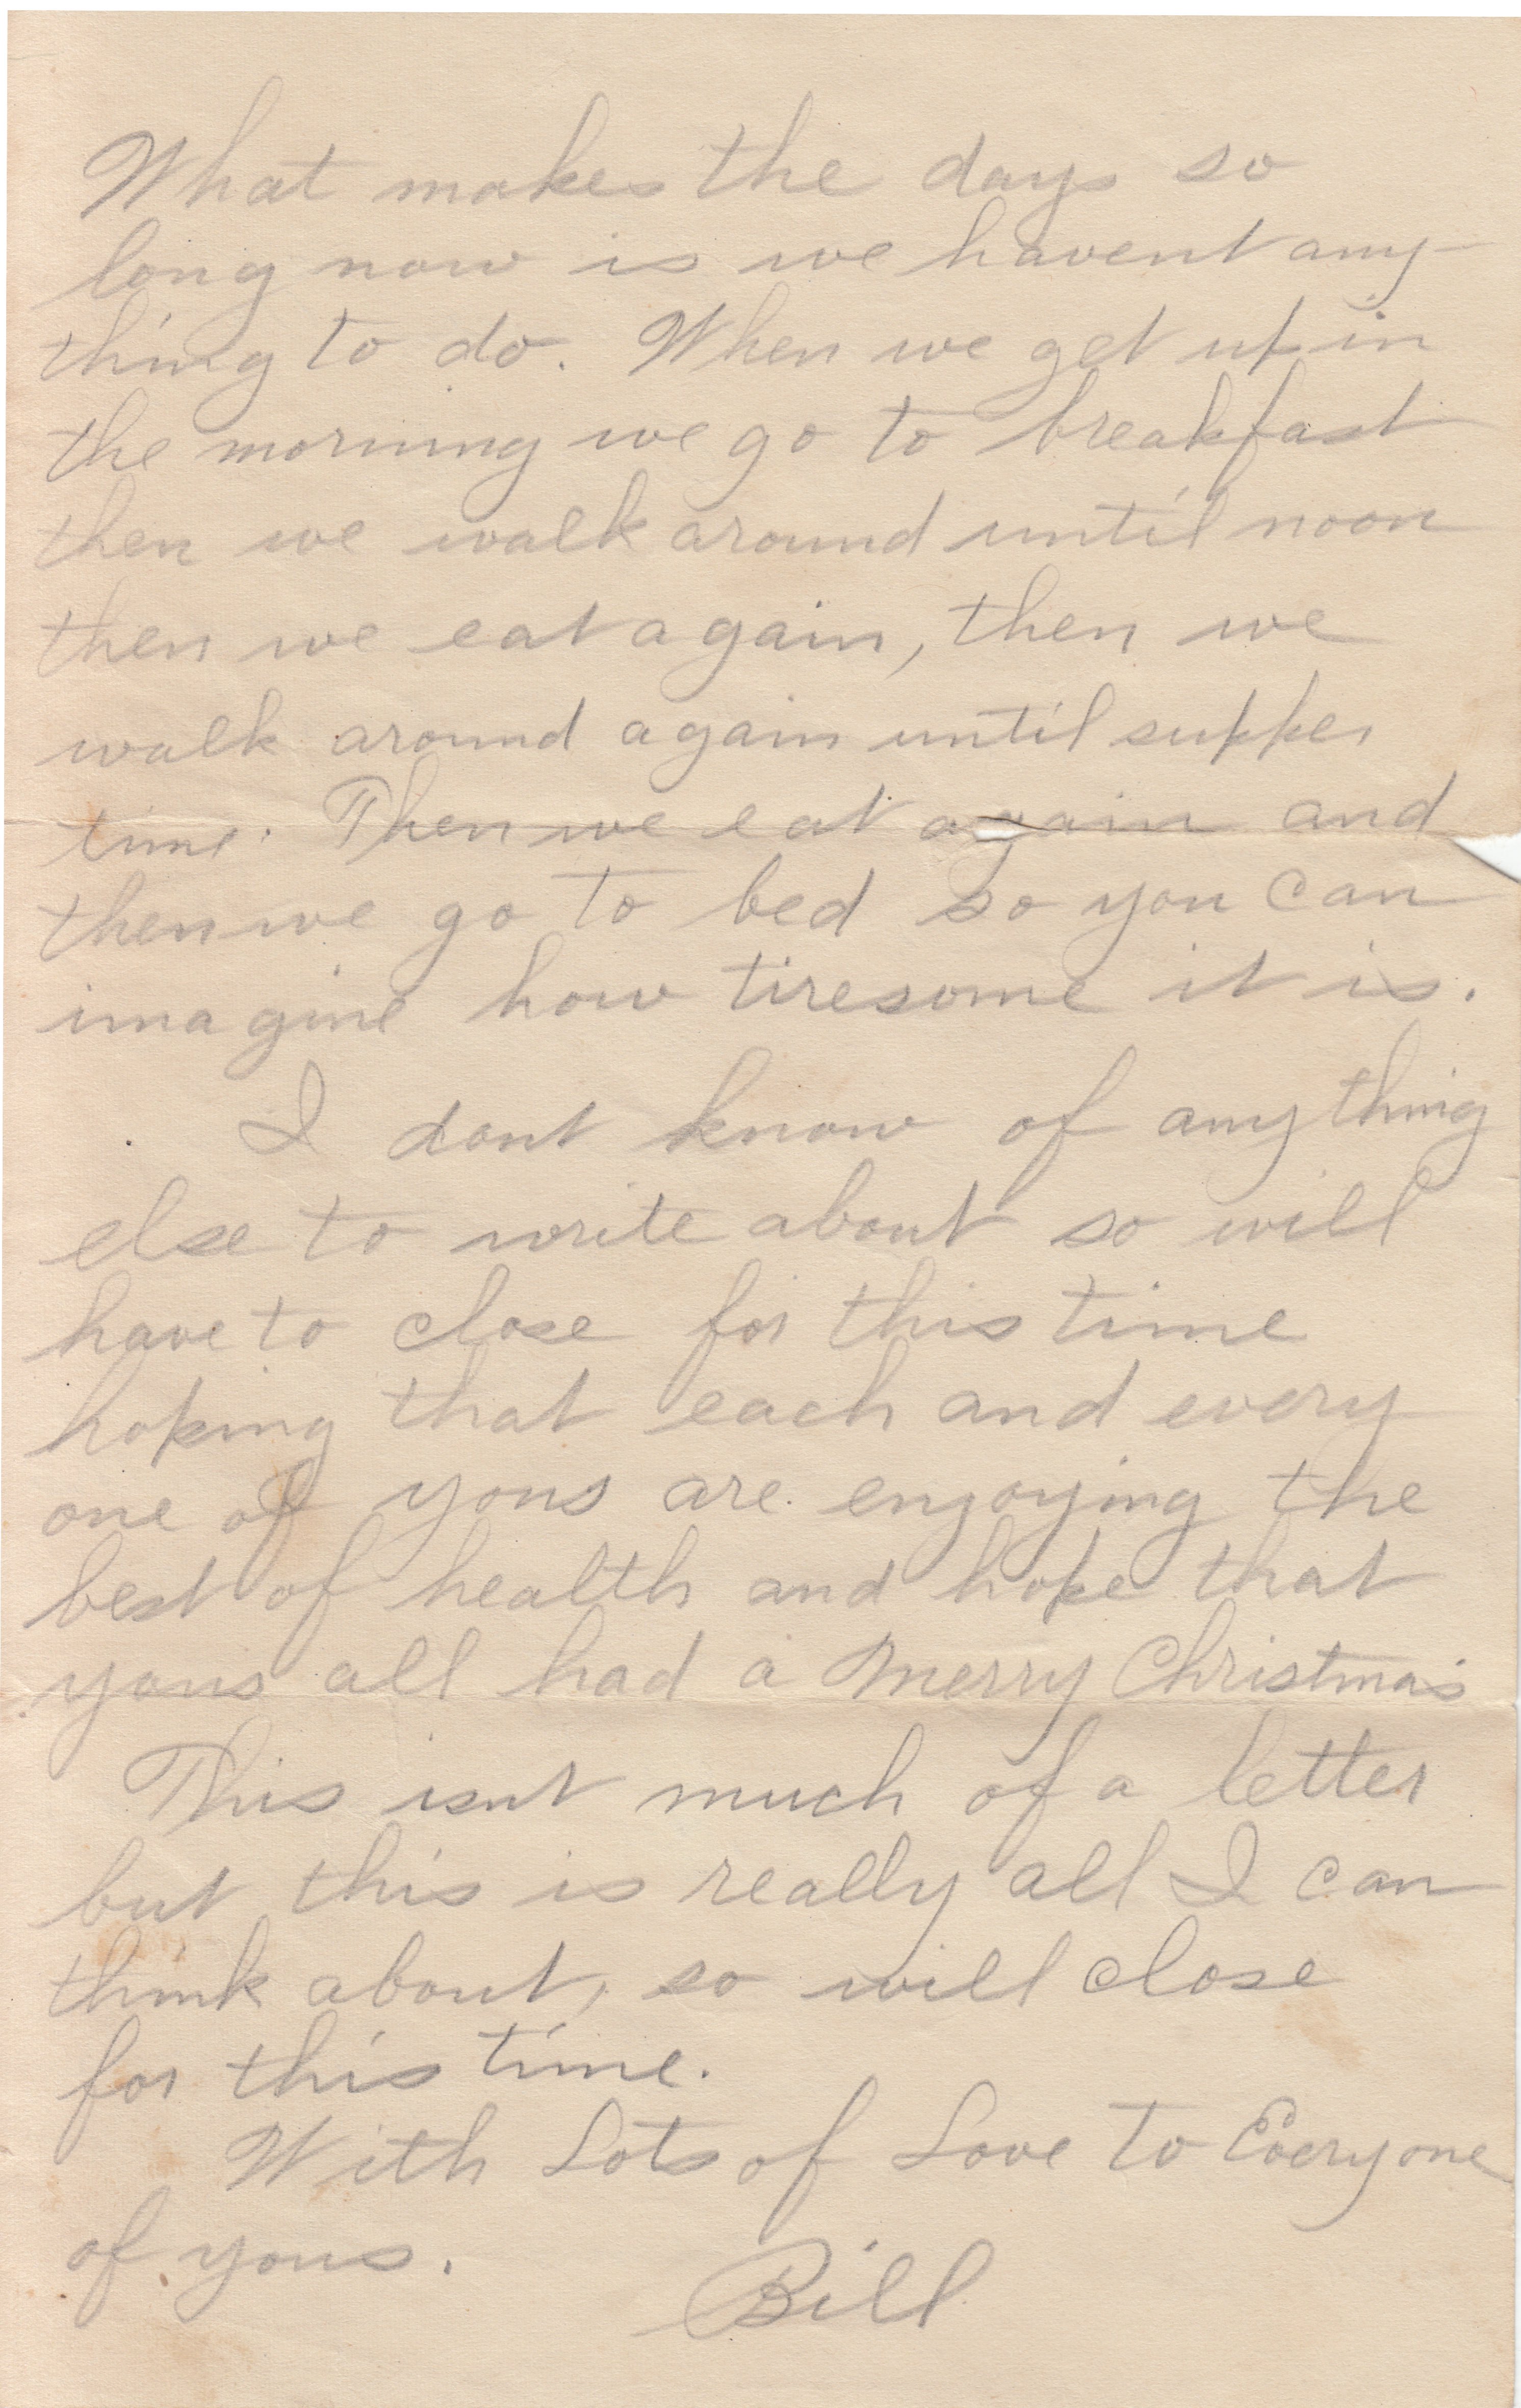 What makes the days so
long now is we havent any-
thing to do. When we get up in
the morning we go to breakfast
then we walk around until noon
then we eat again, then we
walk around again until supper
time. Then we eat again and
then we go to bed so you can
imagine how tiresome it is.
I dont know of anything
else to write about so will
have to close for this time
hoping that each and every
one of yous are enjoying the
best of health and hope that
yous all had a Merry Christmas
This isnt much of a letter
but this is really all I can
think about, so will close
for this time.
With Lots of Love to Everyone
of yous.
Bill